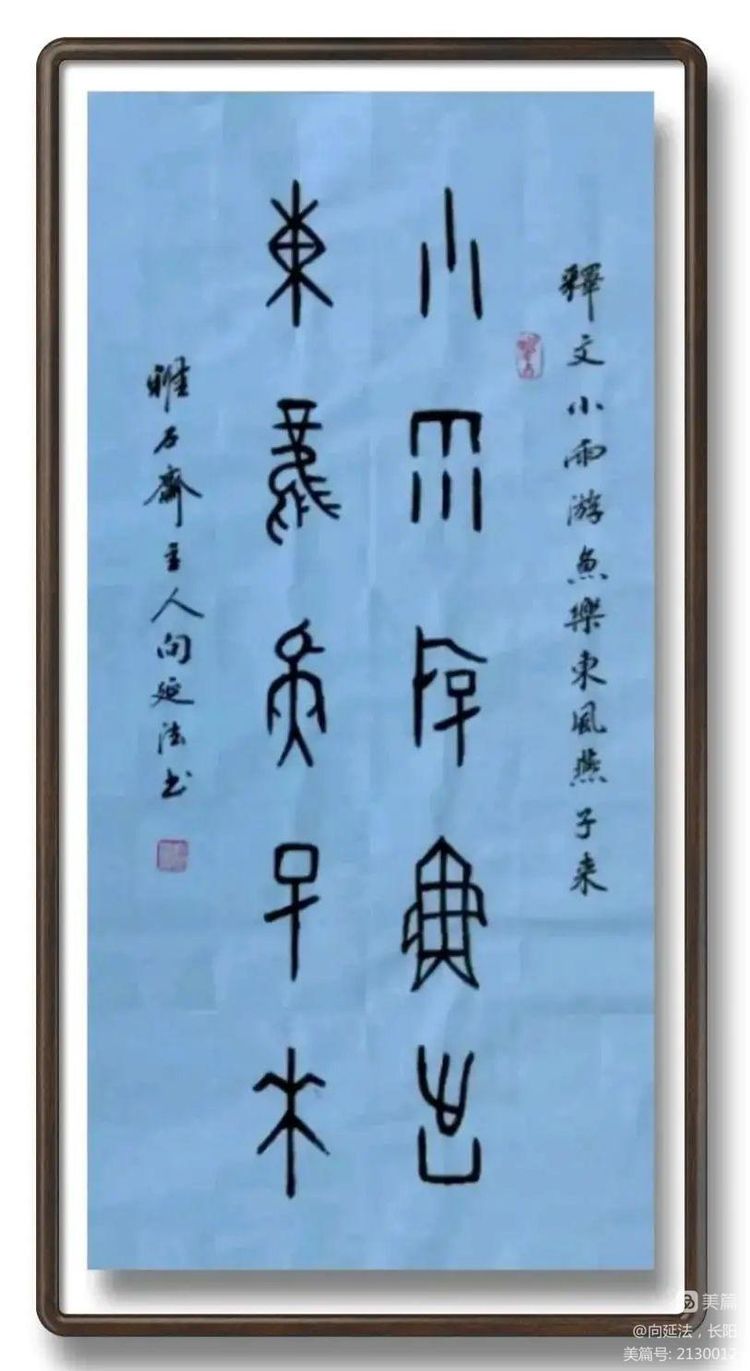 釋文小雨游魚樂東風燕子来
小雨游魚出
東風燕子来
石齋主人向延法书
美篇
@向延法，长阳
美篇号: 2130012